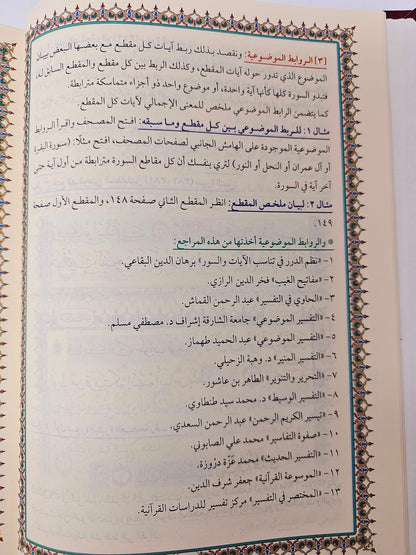 [٣] الروابط الموضوعية: ونقصد بذلك ربط آيات كل مقطع مع بعضها البعض ببيان
الموضوع الذي تدور حوله آيات المقطع، وكذلك الربط بين كل مقطع والمقطع السابق له،
فتبدو السورة كلها كأنها آية واحدة، أو موضوع واحد ذو أجزاء متماسكة مترابطة.
كما يتضمن الرابط الموضوعي ملخص للمعنى الإجمالي لآيات كل المقطع.
مثال ١: للربط الموضوعي بين كل مقطع وما سبقه: افتح المصحف واقرأ الروابط
الموضوعية الموجودة على الهامش الجانبي لصفحات المصحف، افتح مثلًا: (سورة البقرة
أو آل عمران أو النحل أو النور) لترى بنفسك أن كل مقاطع سورة مترابطة من أول آية حتى
آخر آية في السورة.
مثال ٢: لبيان ملخص المقطع: انظر المقطع الثاني صفحة ١٤٨، والمقطع الأول صفحة
١٤٩.
والروابط الموضوعية أخذتها من هذه المراجع:
١- «نظم الدرر في تناسب الآيات والسور» برهان الدين البقاعي.
٢- «مفاتيح الغيب» فخر الدين الرازي.
٣- «الحاوي في التفسير» عبد الرحمن القماش.
٤- «التفسير الموضوعي» جامعة الشارقة إشراف د. مصطفي مسلم.
٥- «التفسير الموضوعي» عبد الحميد طهماز.
٦- «التفسير المنير» د. وهبة الزحيلي.
٧- «التحرير والتنوير» الطاهر بن عاشور.
٨- «التفسير الوسيط» د. محمد سيد طنطاوي.
٩- «تيسير الكريم الرحمن» عبد الرحمن السعدي.
١٠- «صفوة التفاسير» محمد علي الصابوني.
١١- «التفسير الحديث» محمد عَزّة دروزة.
١٢- «الموسوعة القرآنية» جعفر شرف الدين.
١٣- «المختصر في التفسير» مركز تفسير للدراسات القرآنية.